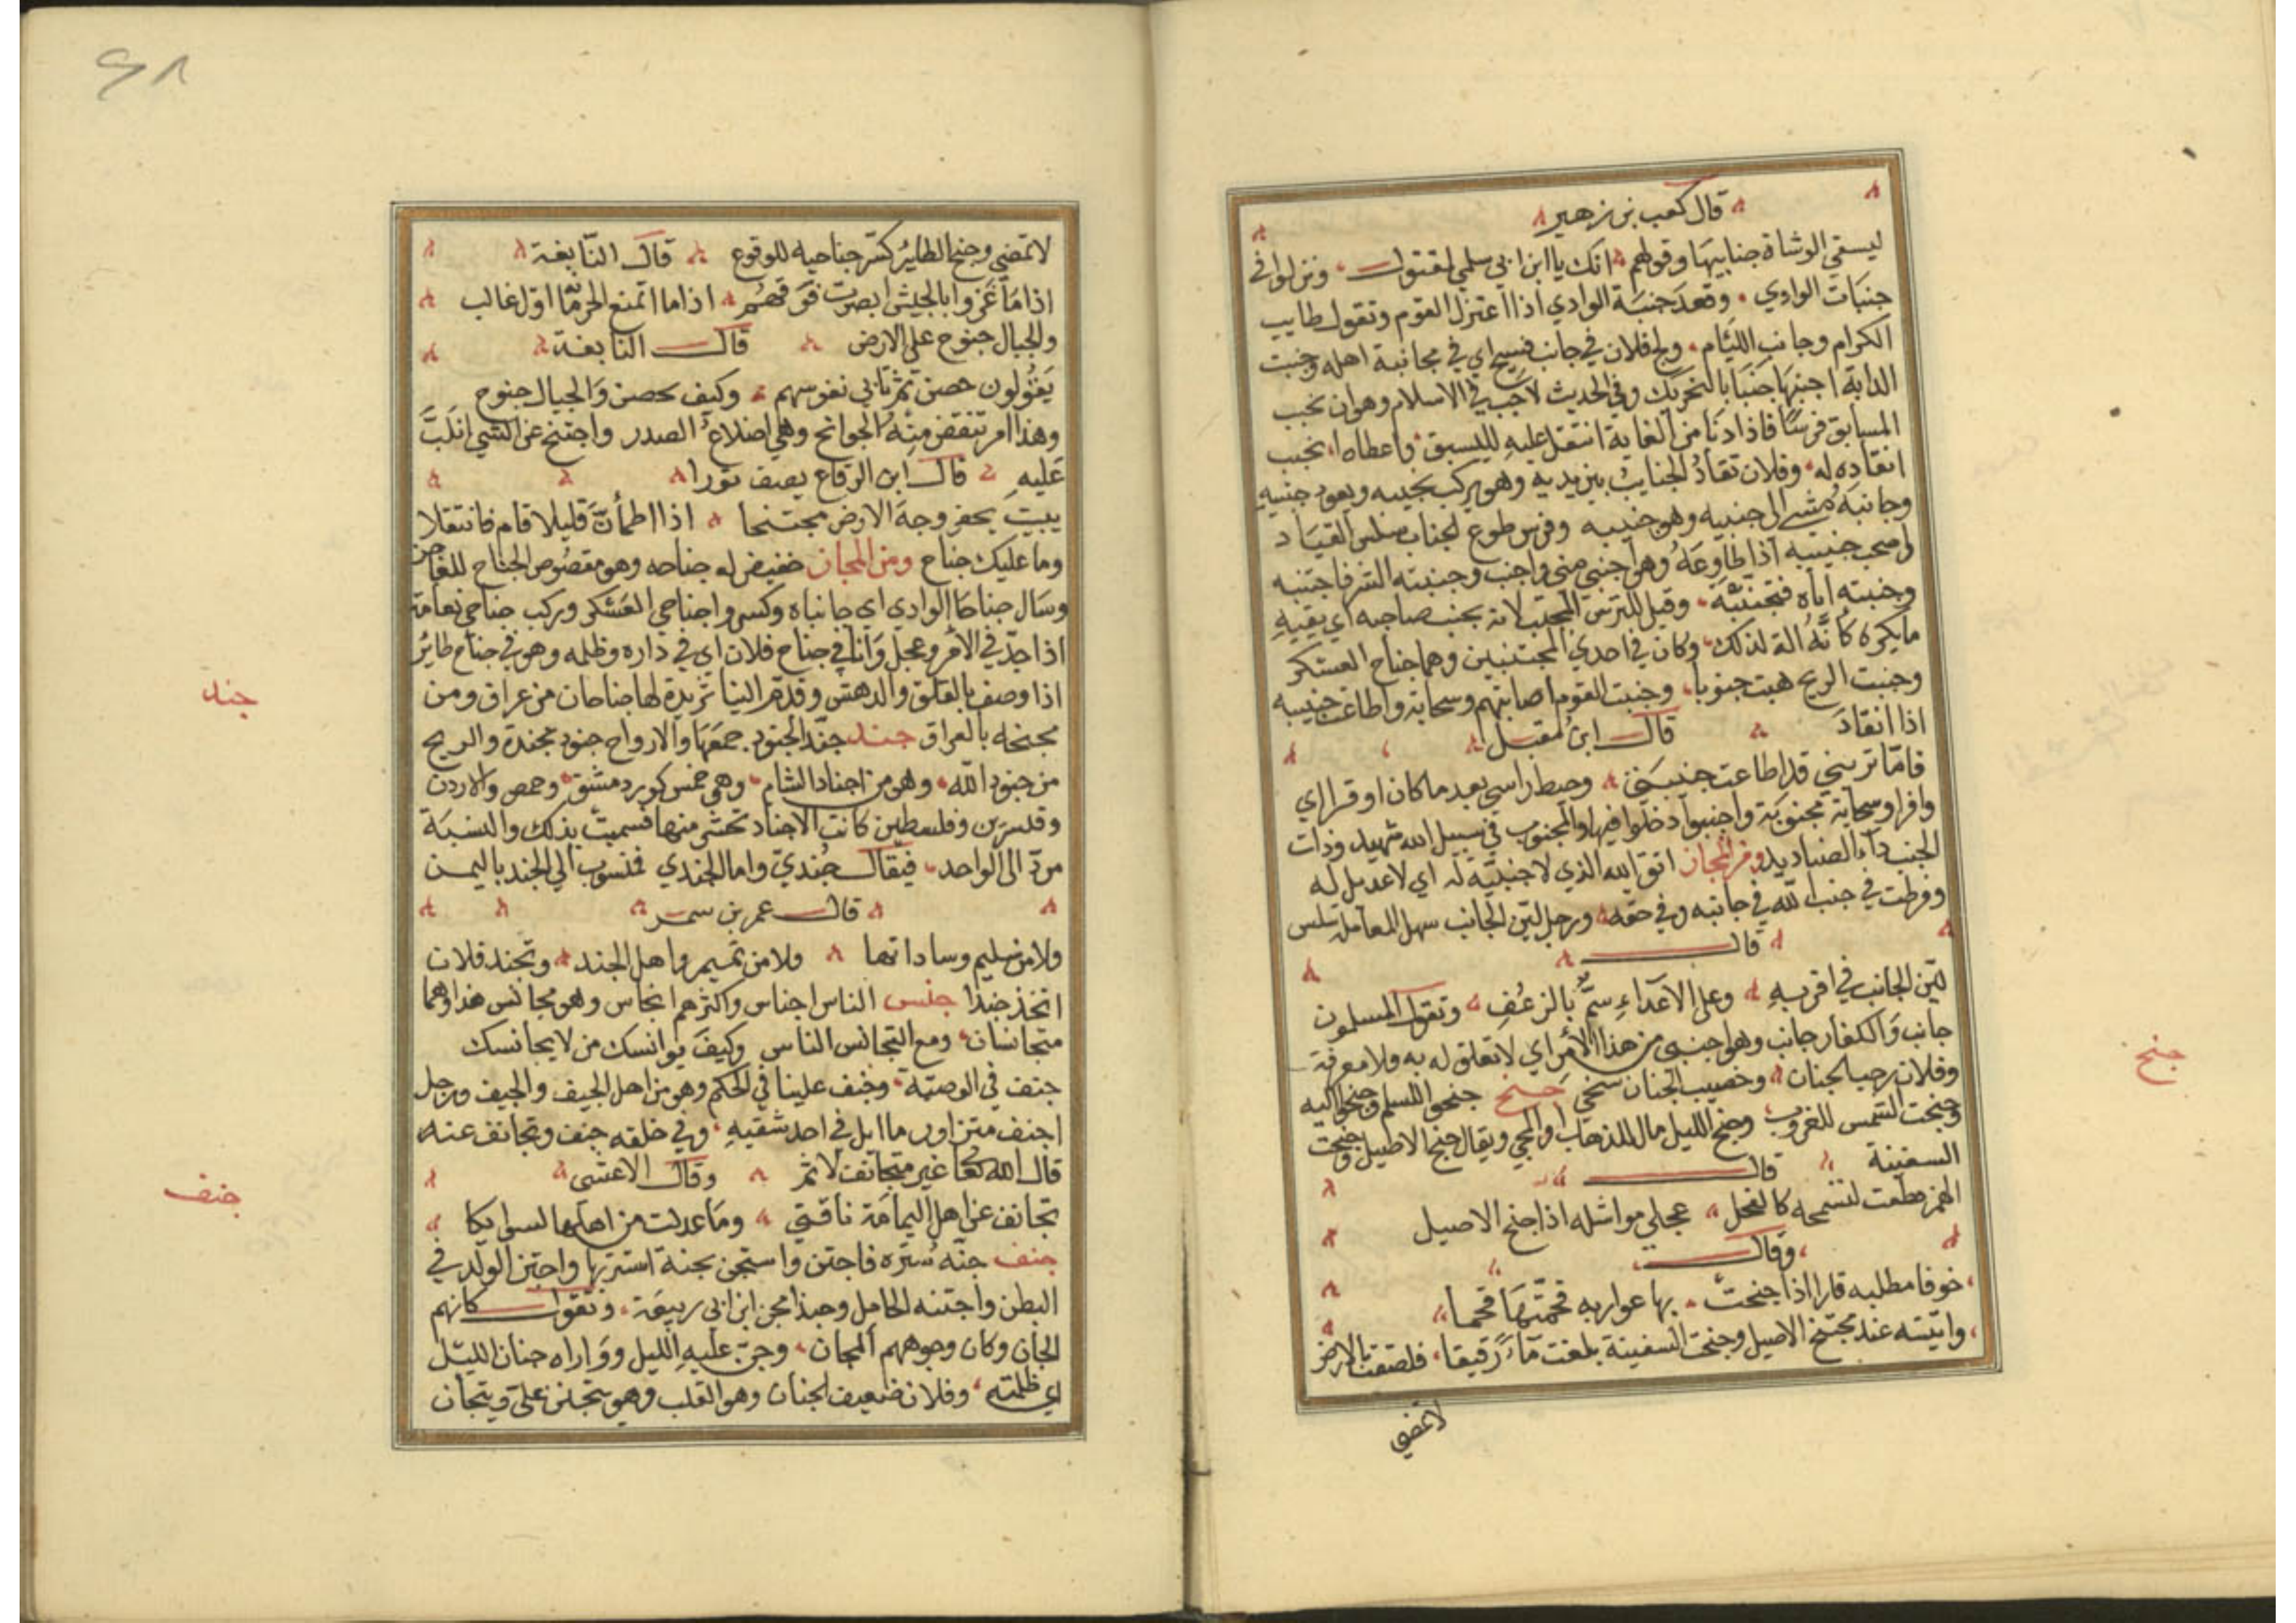 قال كعب بن زهير
ليسقي الوشاة جنابيها وقولهم انك يا ابن ابي سلمي لمقتول ونزلوا في
جنبات الوادي وقعد جنبة الوادي اذا اعتزل القوم وتقول طايب
الكرام وجانب اللئام ولج فلان في جانب فسيح اي في مجانبة اهله وجنبت
الدابة اجنبها جنبا بالتحريك وفي الحديث لا جنب في الاسلام وهو ان يجنب
المسابق فرسا فاذا دنا من الغاية انتقل عليه لليسبق واعطاه يجنب
انقاده له وفلان تقاد الجنايب بين يديه وهو يركب نجيبه ويعود جنيبه
وجانبه مشي الي جنبيه وهو جنيبه وفرس طوع لجناب سلس القياد
اذا طاوعه وهو اجنبي مني واجنب وجنبته الشر فاجتنبه
وجنبته اياه فتجنبه وقيل للترس المجنب لانه يجنب صاحبه اي يقيه
ما يكره كانه الة لذلك وكان في احدي المجتنبين وهما جناح العسكر
وجنبت الريح هبت جنوبا وجنبت القوم اصابتهم وسحابة واطاعت جنيبه
اذا انقاد قال ابن مقبل
فاما تريني قد اطاعت جنيبتي وحبط راسي بعد ما كان اوقرا اي
وافرا وسحابة مجنوبة واجنبوا دخلوا فيها والمجنوب في سبيل الله شهيد وذات
الجنب داء الصناديد ومن المجاز اتق الله الذي لا جنبية له اي لا عديل له
وفرطت في جنب الله في جانبه وفي حقه ورجل لين الجانب سهل المعاملة سلس
قال
لين الجانب في اقربيه وعلي الاعداء سم بالزعف وتقول المسلمون
جانب والكفار جانب وهو اجنبي من هذا الامر اي لا تعلق له به ولا معرفة
وفلان رحب الجنان وخصيب الجنان سخي جنح جنحوا للسلم وجنحوا اليه
وجنحت الشمس للغروب وجنح الليل مال للذهاب او المجي ويقال جنح الاصيل وجنحت
السفينة قال
كالفحل عجلي مواشله اذا جنح الاصيل
وقال
خوفا مطلبه قارا اذا جنحت بها عواربه قحمتها قحما
واتيته عند مجتنح الاصيل وجنحت السفينة بلغت ماء رقيقا فلصقت بالارض
لا تمضي
لا تمضي وجنح الطاير كسر جناحيه للوقوع قال النابغة
اذا ما غزوا بالجيش ابصرت فوقهم اذا ما اول غالب
والجبال جنوح علي الارض قال النابغة
يقولون حصن ثم تابي نفوسهم وكيف بحصن والجبال جنوح
وهذا امر تنقض منه الجوانح وهي اضلاع الصدر واجتنح عن الشي انكب
عليه قال ابن الرقاع يصف ثورا
يبيت يحفر وجه الارض مجتنحا اذا اطمأن قليلا قام فانتقلا
وما عليك جناح ومن المجاز خفيض له جناحه وهو مقصوص الجناح للعاجز
وسال جناحا الوادي اي جانباه وكسروا جناحي العسكر وركب جناحي نعامة
اذا جد في الامر وعجل وانا في جناح فلان اي في داره وظله وهو في جناح طائر
اذا وصف بالقلق والدهش وقدم الينا ثريدة لها جناحان من عراق ومن
مجنحه بالعراق جند جند الجنود جمعها والارواح جنود مجندة والريح
من جنود الله وهو من اجناد الشام وهي خمس كور دمشق وحمص والاردن
وقنسرين وفلسطين كانت الاجناد تحشر منها فسميت بذلك والنسبة
مرد الي الواحد فيقال جندي واما الجندي فمنسوب الي الجند باليمن
قال عمر بن سمر
ولا من سليم وساداتها ولا من تميم واهل الجند وتجند فلان
اتخذ جندا جنس الناس اجناس واكثرهم انجاس وهو مجانس هذا وهما
متجانسان ومع التجانس الناس وكيف يوانسك من لا يجانسك
جنف في الوصية وجنف علينا في الحكم وهو من اهل الجنف والحيف ورجل
اجنف متزاور مائل في احد شقيه وفي خلقه جنف وتجانف عنه
قال الله تعا غير متجانف لاثم وقال الاعشي
تجانف عن اهل اليمامة ناقتي وما عدلت من اهلها لسوايكا
جنف جنه ستره فاجتن واستجن بجنة استتر بها واجتن الولد في
البطن واجتنه الحامل وحبذا مجن ابن ابي ربيعة وتقول كانهم
الجان وكان وجوههم المجان وجن عليه الليل وواراه جنان الليل
اي ظلمته وفلان ضعيف الجنان وهو القلب وهو يتجنن علي ويتجان
جنح
جند
جنف